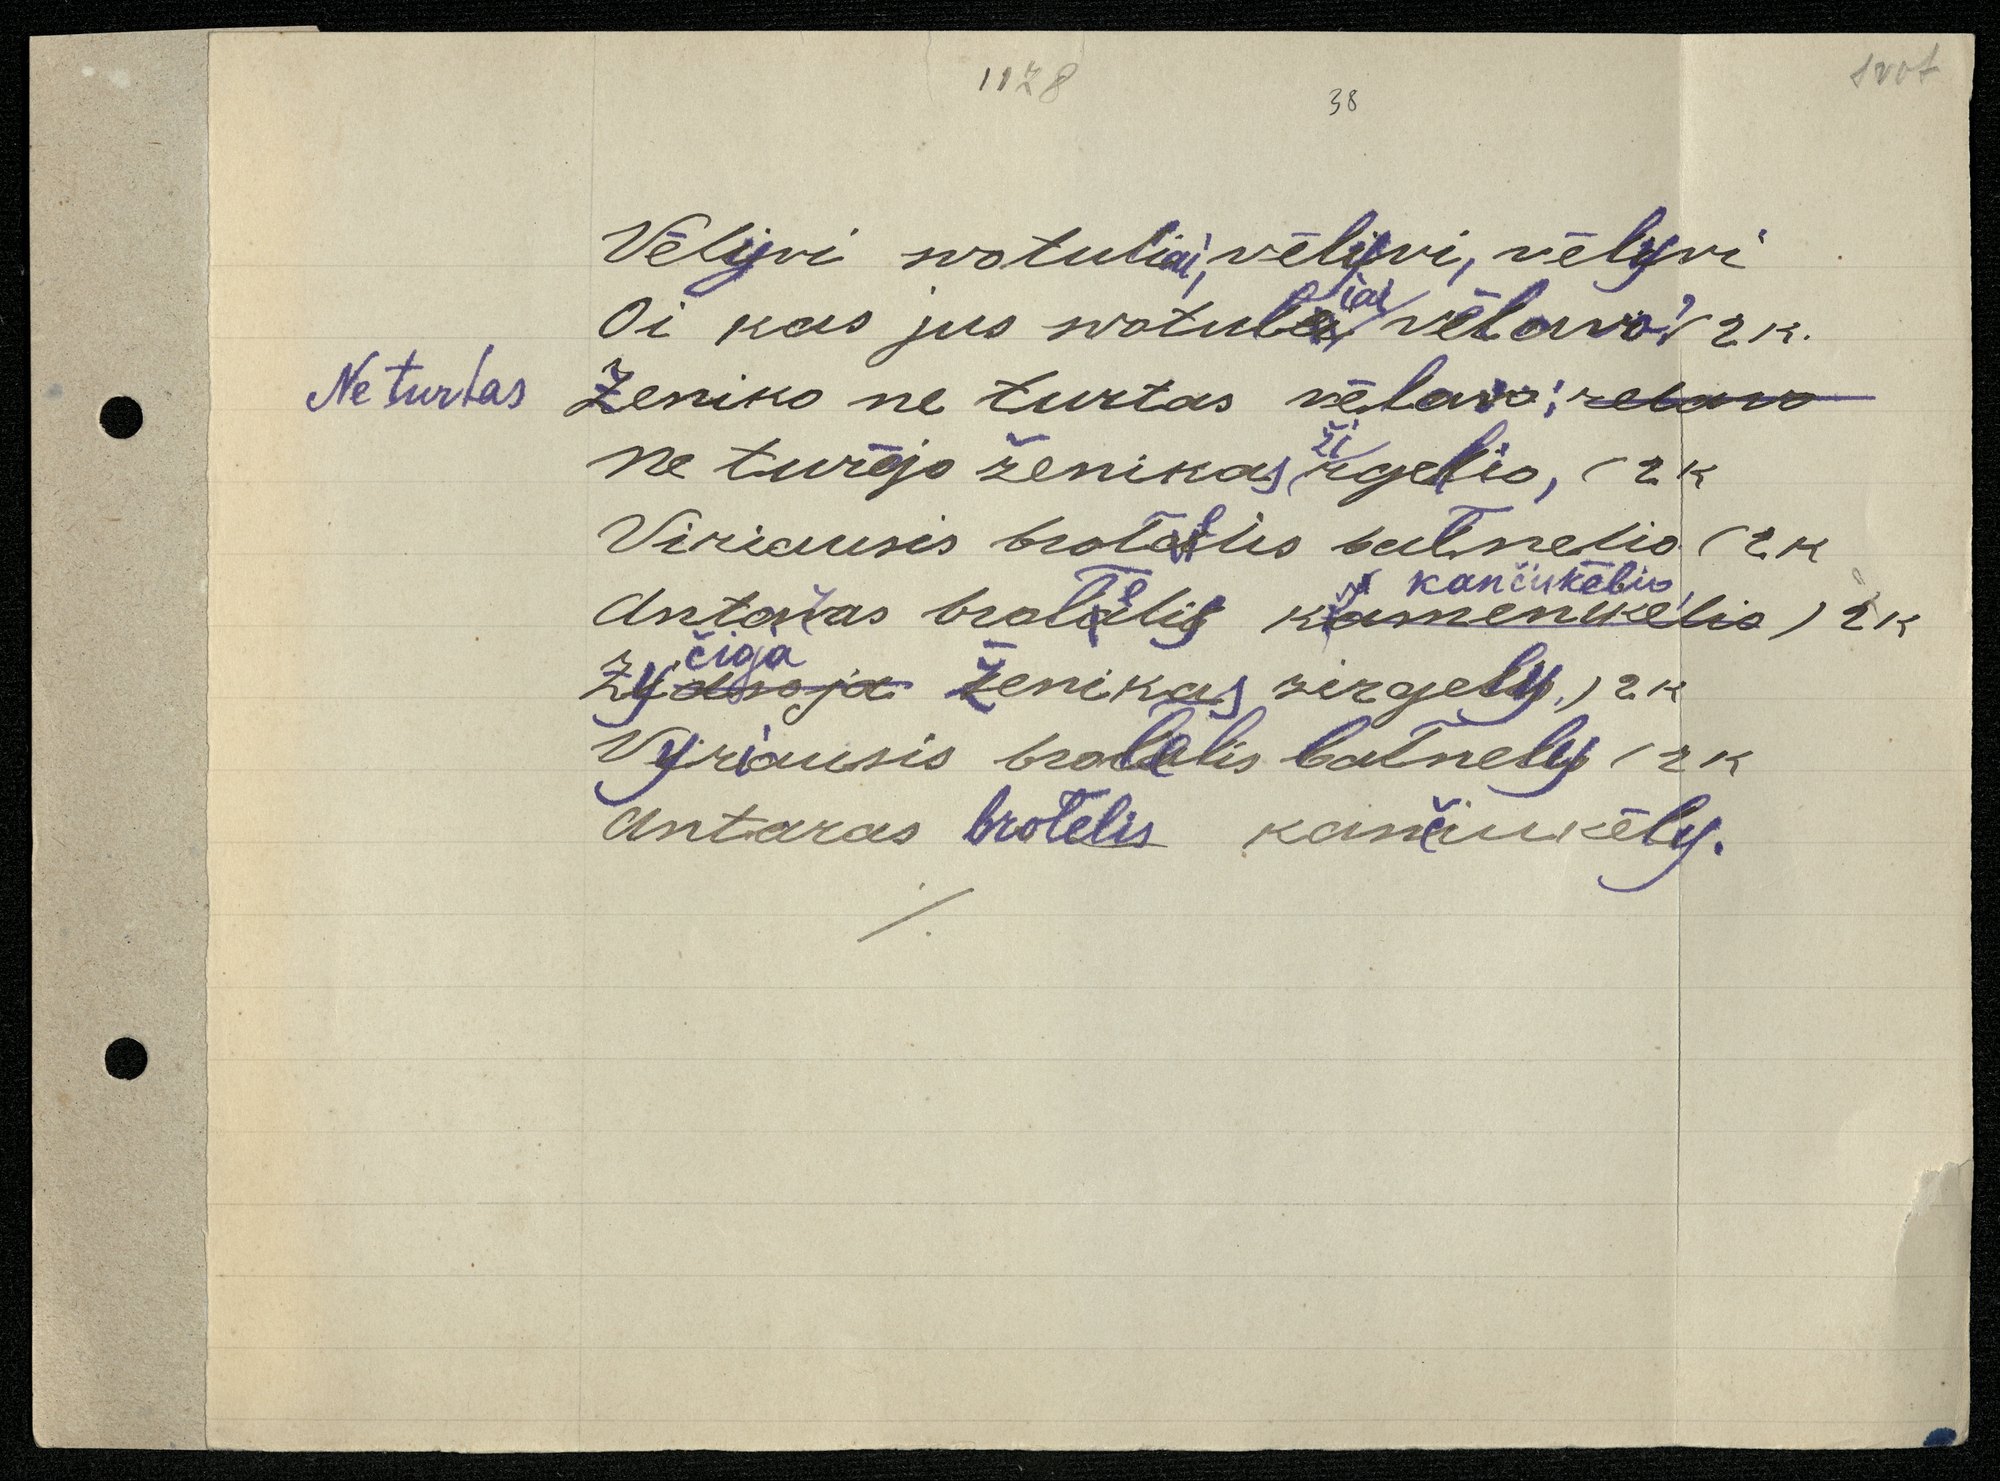 1128
38
svot
Vēlyvi svotuliai, vēlyvi, vēlyvi
Oi kas jus svotuliai vēlavo? (2 k.
Ne turtas Ženiko ne turtas vēlavo; velavo
ne turējo ženikas žirgelio, (2 k
Viriausis brotelis balnelio (2 k
kančiukēlio,
Antaras brotelis kamenukēlio ) 2 k
čiqja
Žyčioja Ženikas zirgely.) 2 k
Vyriausis brotelis balnely (2 k
Antaras brotelis kančiukēly.